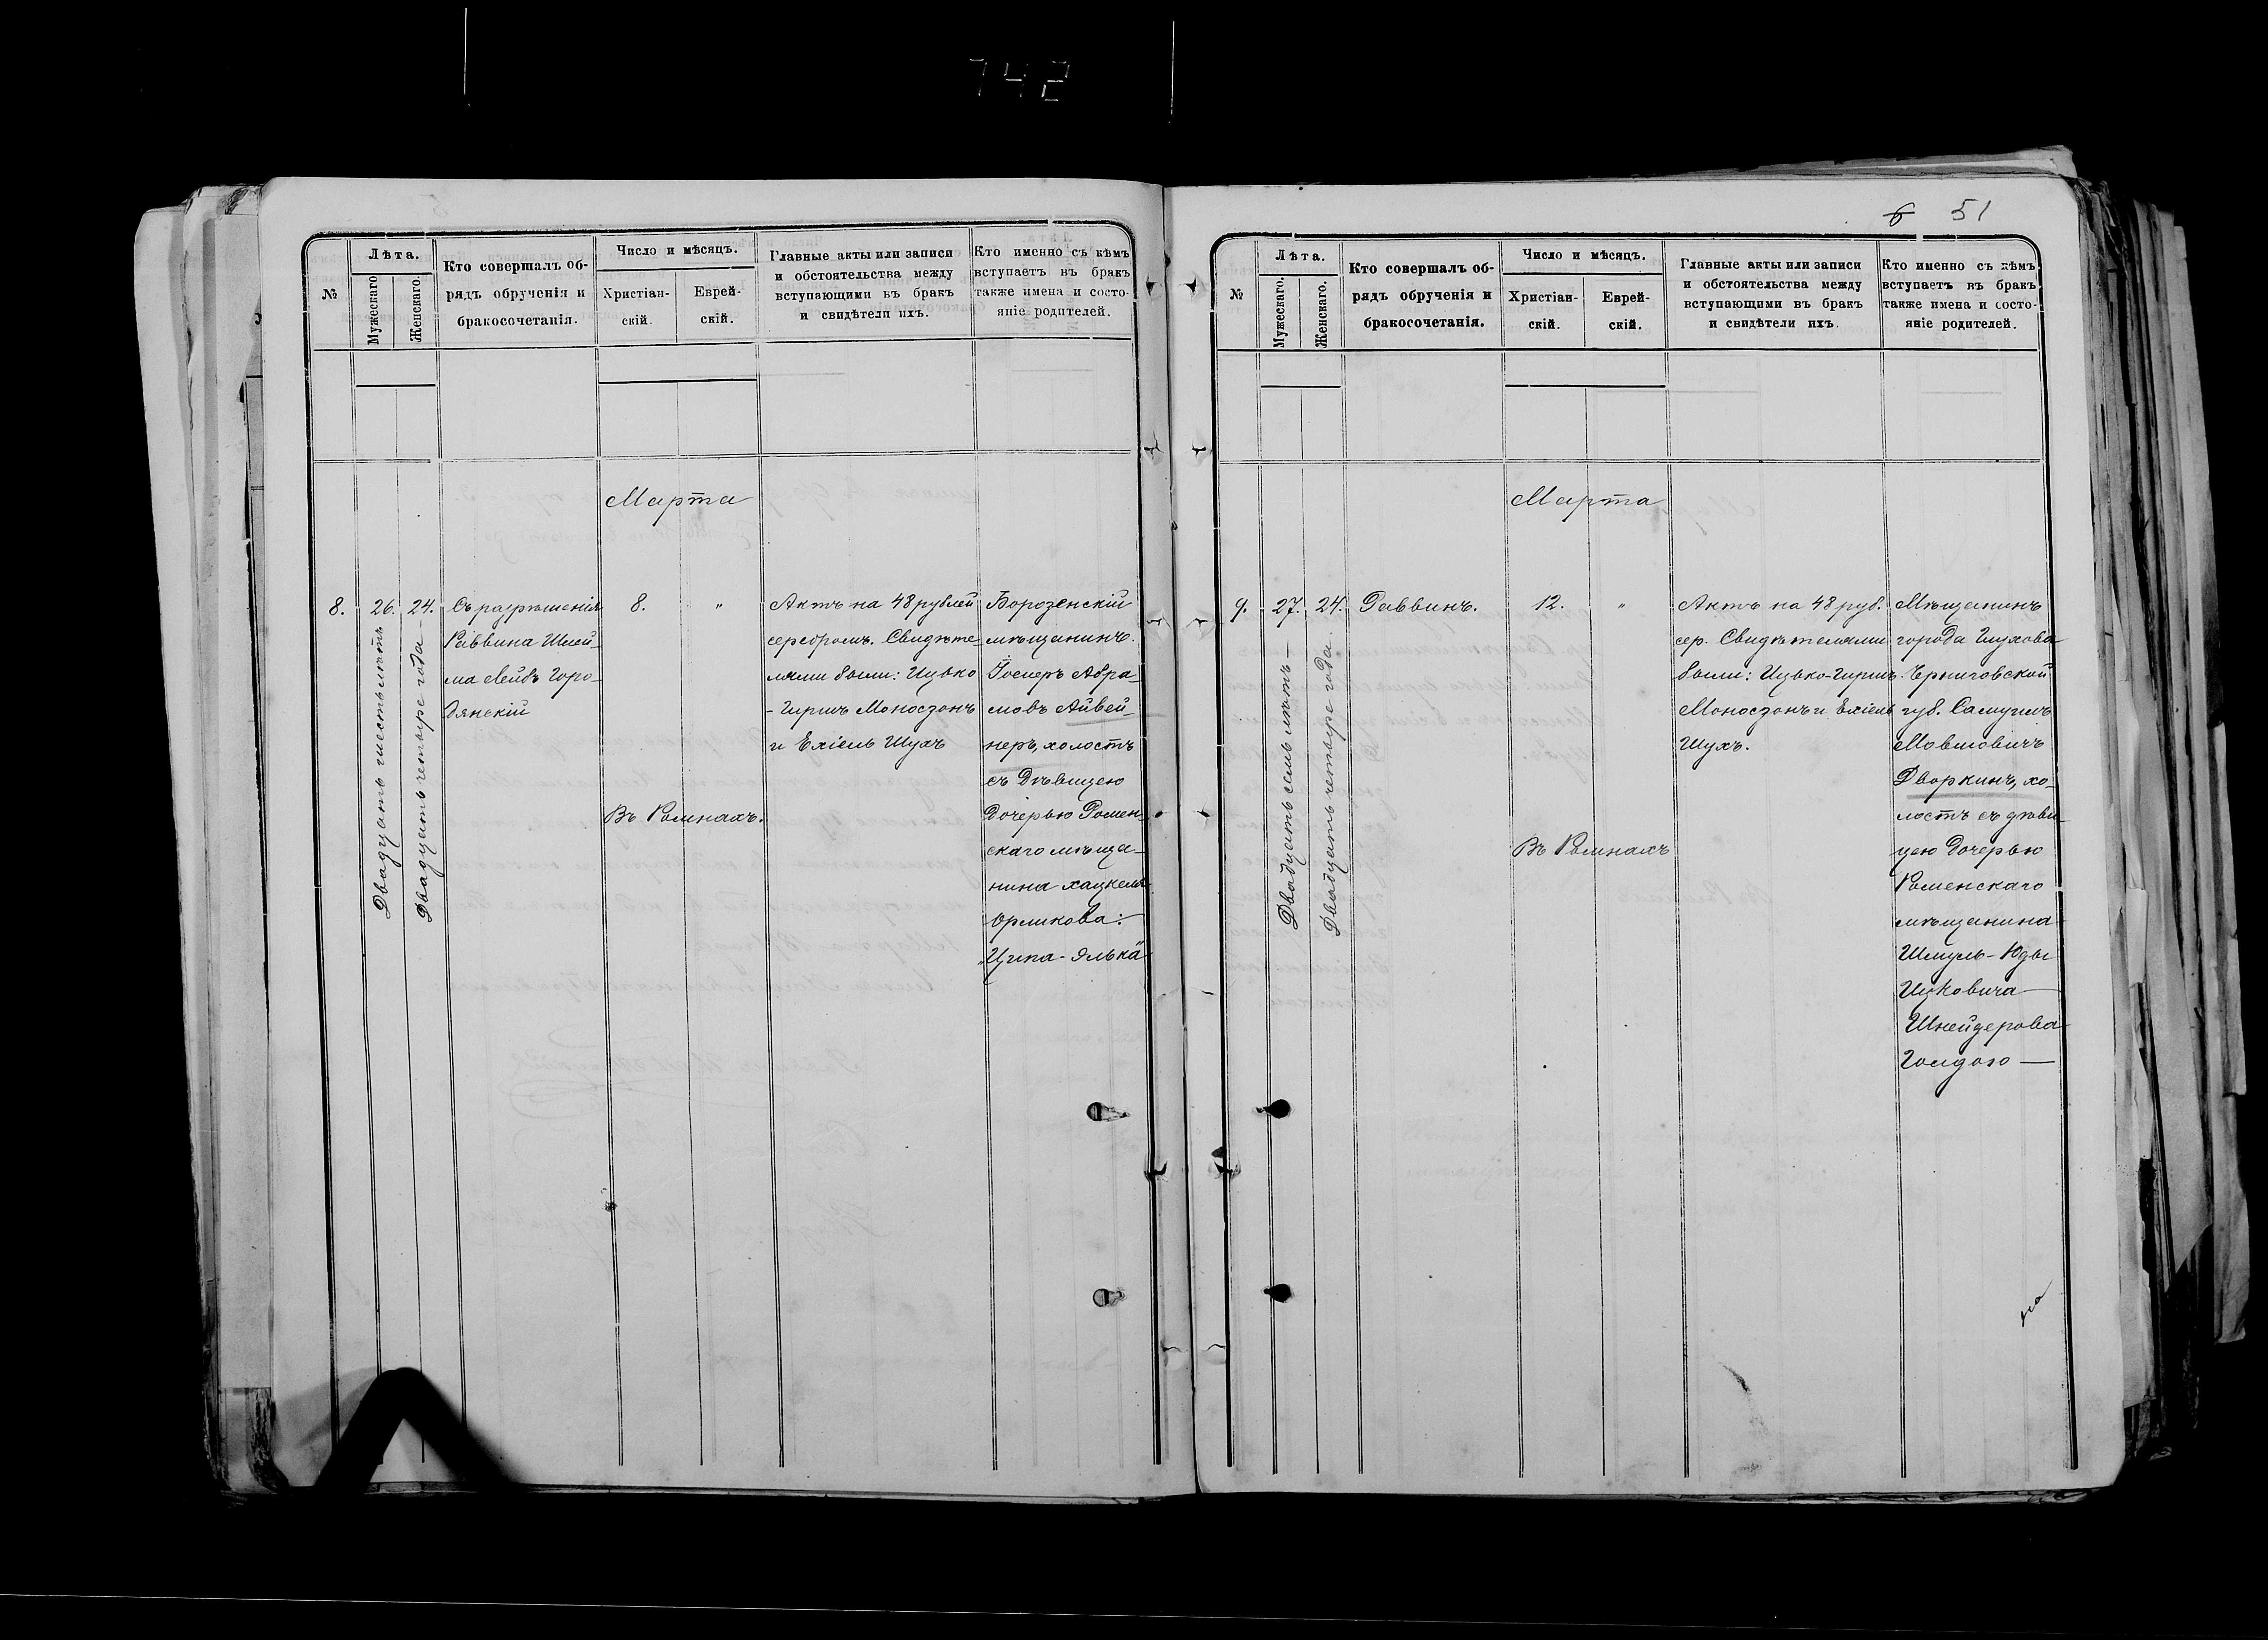 742
№
Лѣта.
Мужескаго.
Женскаго.
Кто совершалъ об-
рядъ обрученія и
бракосочетанія.
Число и мѣсяцъ.
Христіан-
скій.
Еврей-
скій.
Главные акты или записи
и обстоятельства между
вступающими въ бракъ
и свидѣтели ихъ.
Кто именно съ кѣмъ
вступаетъ въ бракъ
также имена и состо-
яніе родителей.
Марта
8.
26.
Двадцать шесть лѣтъ
24.
Двадцать четыре года
Съ разрѣшенія
Раввина Шлей-
ма Лейбъ Горо-
дянскій
8.
"
Въ Ромнахъ.
Актъ на 48 рублей
серебромъ. Свидѣте-
лями были: Ицько
-Гиршъ Моносзонъ
и Ехіель Шухъ
Борозенскій
мѣщанинъ.
Іосперъ Абра-
мовъ Айвей-
неръ, холостъ
съ Дѣвицею
Дочерью Ромен-
скаго мѣща-
нина Хацкеля
Орликова:
"Ципа-Элька"
6 51
№
Лѣта.
Мужескаго.
Женскаго.
Кто совершалъ об-
рядъ обрученія и
бракосочетанія.
Число и мѣсяцъ.
Христіан-
скій.
Еврей-
скій.
Главные акты или записи
и обстоятельства между
вступающими въ бракъ
и свидѣтели ихъ.
Кто именно съ кѣмъ
вступаетъ въ бракъ
также имена и состо-
яніе родителей.
Марта
9.
27.
Двадцать семь лѣтъ—
24.
Двадцать четыре года.
Раввинъ.
12.
"
Въ Ромнахъ
Актъ на 48 руб.
сер. Свидѣтелями
были: Ицько-Гиршъ
Моносзонъ и Ехіель
Шухъ.
Мѣщанинъ
города Глухова
Черниговской
губ. Самуилъ
Мовшовичъ
Дворкинъ, хо-
лостъ съ дѣви-
цею Дочерью
Роменскаго
мѣщанина
Шмуль-Юды
Ицковича—
Шнейдерова
Голдою—